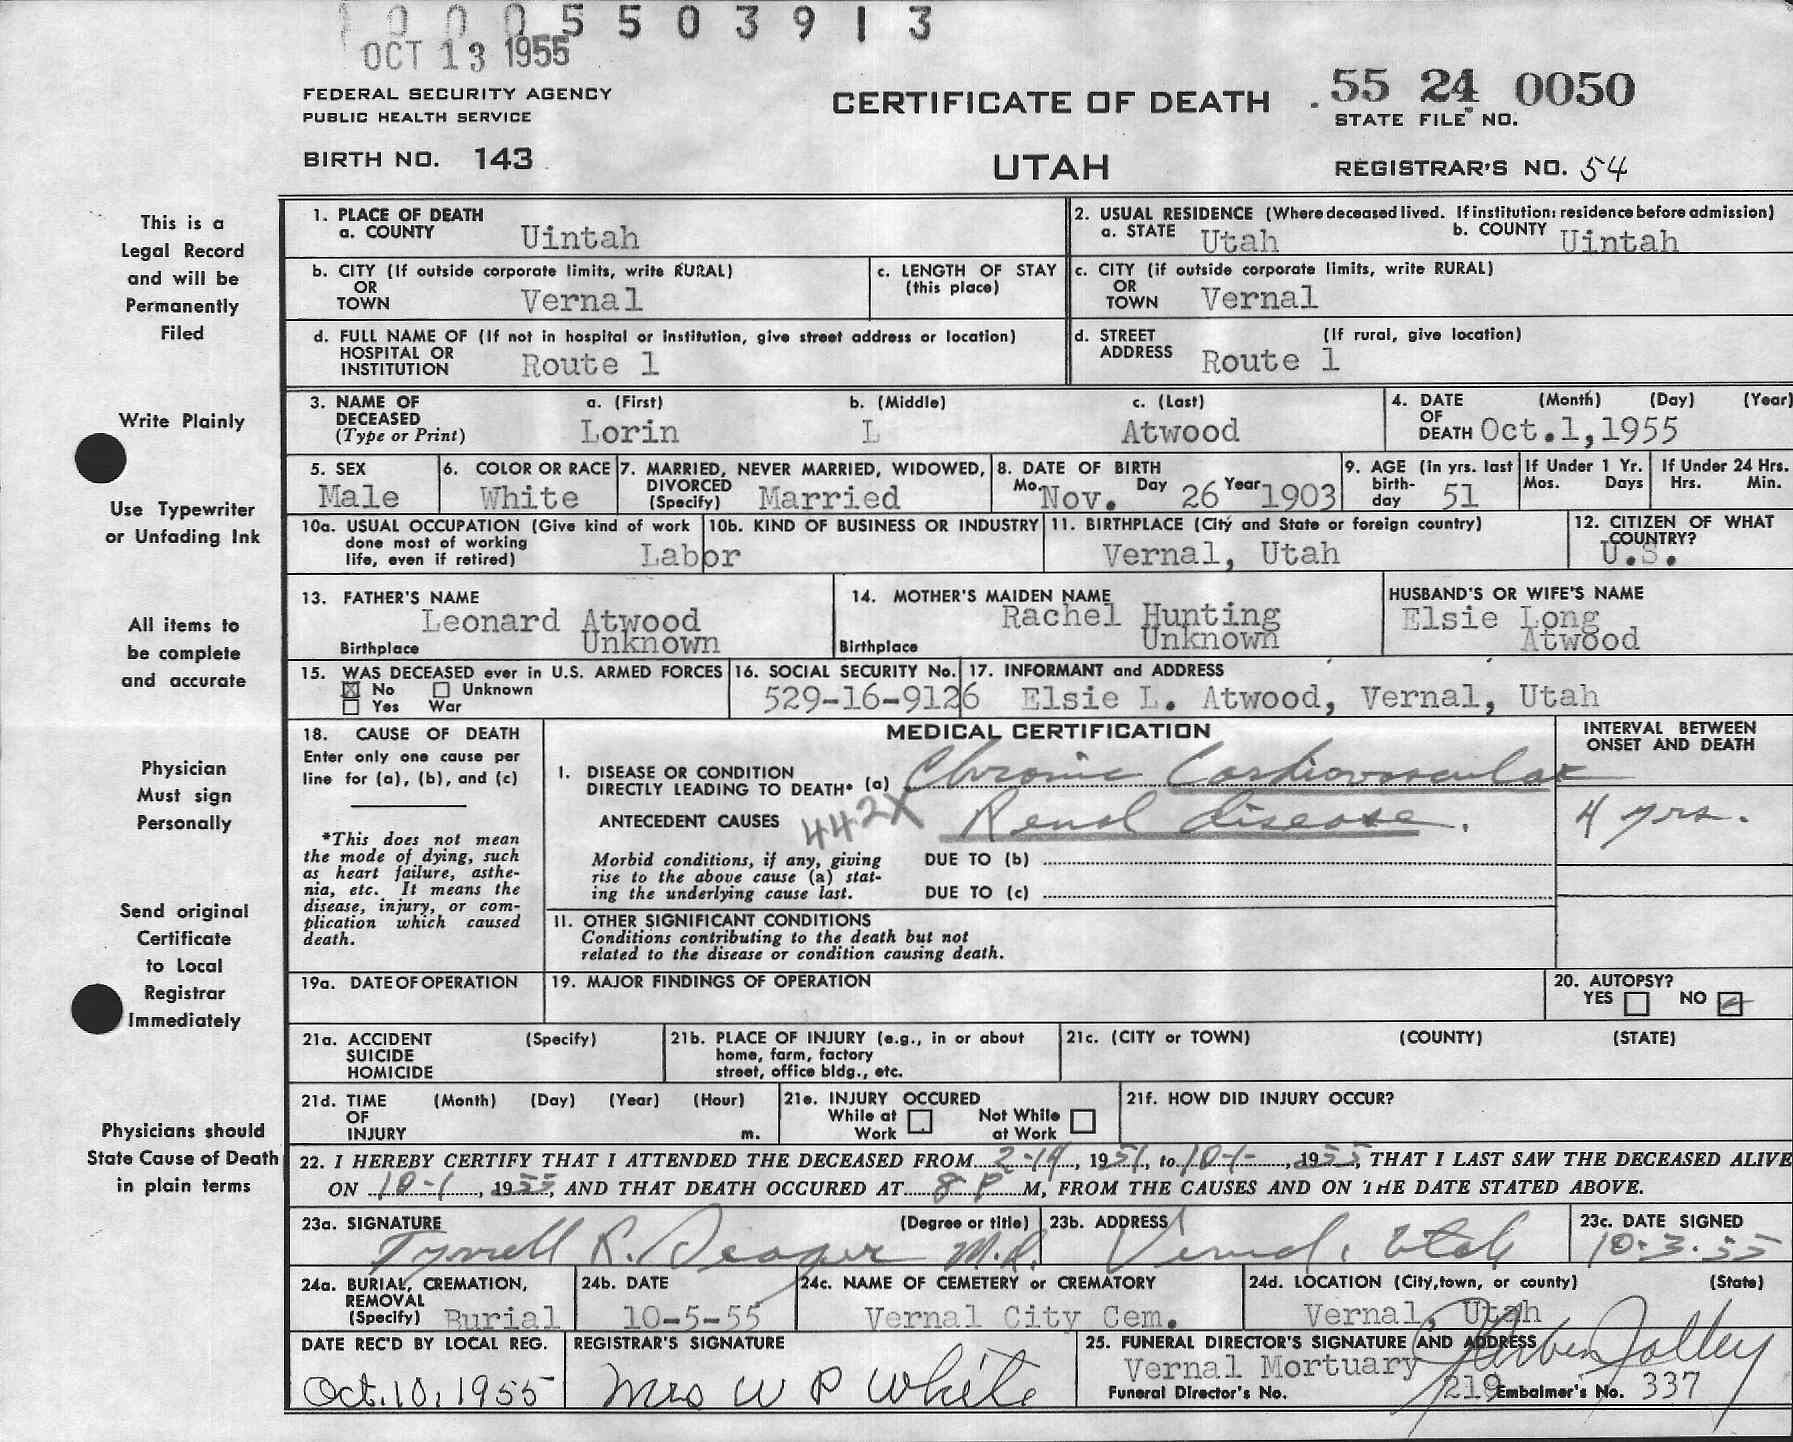 10005503913
OCT 13 1955
FEDERAL SECURITY AGENCY
PUBLIC HEALTH SERVICE
BIRTH NO. 143
CERTIFICATE OF DEATH
UTAH
55 24 0050
STATE FILE NO.
REGISTRAR'S NO. 54
This is a
Legal Record
and will be
Permanently
Filed
Write Plainly
Use Typewriter
or Unfading Ink
All items to
be complete
and accurate
Physician
Must sign
Personally
Send original
Certificate
to Local
Registrar
Immediately
Physicians should
State Cause of Death
in plain terms
1. PLACE OF DEATH
a. COUNTY Uintah
2. USUAL RESIDENCE (Where deceased lived. If institution: residence before admission)
a. STATE Utah b. COUNTY Uintah
b. CITY (If outside corporate limits, write RURAL)
OR
TOWN Vernal
c. LENGTH OF STAY
(this place)
c. CITY (if outside corporate limits, write RURAL)
OR
TOWN Vernal
d. FULL NAME OF (If not in hospital or institution, give street address or location)
HOSPITAL OR
INSTITUTION Route 1
d. STREET (If rural, give location)
ADDRESS Route 1
3. NAME OF a. (First) b. (Middle) c. (Last)
DECEASED
(Type or Print) Lorin L Atwood
4. DATE (Month) (Day) (Year)
OF
DEATH Oct.1,1955
5. SEX
Male
6. COLOR OR RACE
White
7. MARRIED, NEVER MARRIED, WIDOWED,
DIVORCED
(Specify) Married
8. DATE OF BIRTH
Mo. Nov. Day 26 Year 1903
9. AGE (in yrs. last
birth-
day 51
If Under 1 Yr.
Mos. Days
If Under 24 Hrs.
Hrs. Min.
10a. USUAL OCCUPATION (Give kind of work
done most of working
life, even if retired) Labor
10b. KIND OF BUSINESS OR INDUSTRY
11. BIRTHPLACE (City and State or foreign country)
Vernal, Utah
12. CITIZEN OF WHAT
COUNTRY?
U.S.
13. FATHER'S NAME
Leonard Atwood
Birthplace Unknown
14. MOTHER'S MAIDEN NAME
Rachel Hunting
Birthplace Unknown
HUSBAND'S OR WIFE'S NAME
Elsie Long
Atwood
15. WAS DECEASED ever in U.S. ARMED FORCES
☒ No ☐ Unknown
☐ Yes War
16. SOCIAL SECURITY No.
529-16-9126
17. INFORMANT and ADDRESS
Elsie L. Atwood, Vernal, Utah
18. CAUSE OF DEATH
Enter only one cause per
line for (a), (b), and (c)
*This does not mean
the mode of dying, such
as heart failure, asthe-
nia, etc. It means the
disease, injury, or com-
plication which caused
death.
MEDICAL CERTIFICATION
INTERVAL BETWEEN
ONSET AND DEATH
I. DISEASE OR CONDITION
DIRECTLY LEADING TO DEATH* (a) Chronic Cardiovascular
ANTECEDENT CAUSES 442X Renal disease. 4 yrs.
Morbid conditions, if any, giving
rise to the above cause (a) stat-
ing the underlying cause last.
DUE TO (b)
DUE TO (c)
II. OTHER SIGNIFICANT CONDITIONS
Conditions contributing to the death but not
related to the disease or condition causing death.
19a. DATE OF OPERATION
19. MAJOR FINDINGS OF OPERATION
20. AUTOPSY?
YES ☐ NO ☑
21a. ACCIDENT (Specify)
SUICIDE
HOMICIDE
21b. PLACE OF INJURY (e.g., in or about
home, farm, factory
street, office bldg., etc.
21c. (CITY or TOWN) (COUNTY) (STATE)
21d. TIME (Month) (Day) (Year) (Hour)
OF
INJURY m.
21e. INJURY OCCURED
While at Work ☐ Not While at Work ☐
21f. HOW DID INJURY OCCUR?
22. I HEREBY CERTIFY THAT I ATTENDED THE DECEASED FROM 2-19, 1951, to 10-1-, 1955, THAT I LAST SAW THE DECEASED ALIVE
ON 10-1, 1955, AND THAT DEATH OCCURED AT 8 P M, FROM THE CAUSES AND ON THE DATE STATED ABOVE.
23a. SIGNATURE (Degree or title)
Tyrrell R. Seager M.D.
23b. ADDRESS
Vernal, Utah
23c. DATE SIGNED
10-3-55
24a. BURIAL, CREMATION,
REMOVAL
(Specify) Burial
24b. DATE
10-5-55
24c. NAME OF CEMETERY or CREMATORY
Vernal City Cem.
24d. LOCATION (City, town, or county) (State)
Vernal, Utah
DATE REC'D BY LOCAL REG.
Oct. 10, 1955
REGISTRAR'S SIGNATURE
Mrs W P White
25. FUNERAL DIRECTOR'S SIGNATURE AND ADDRESS
Vernal Mortuary Jolley
Funeral Director's No. 219 Embalmer's No. 337